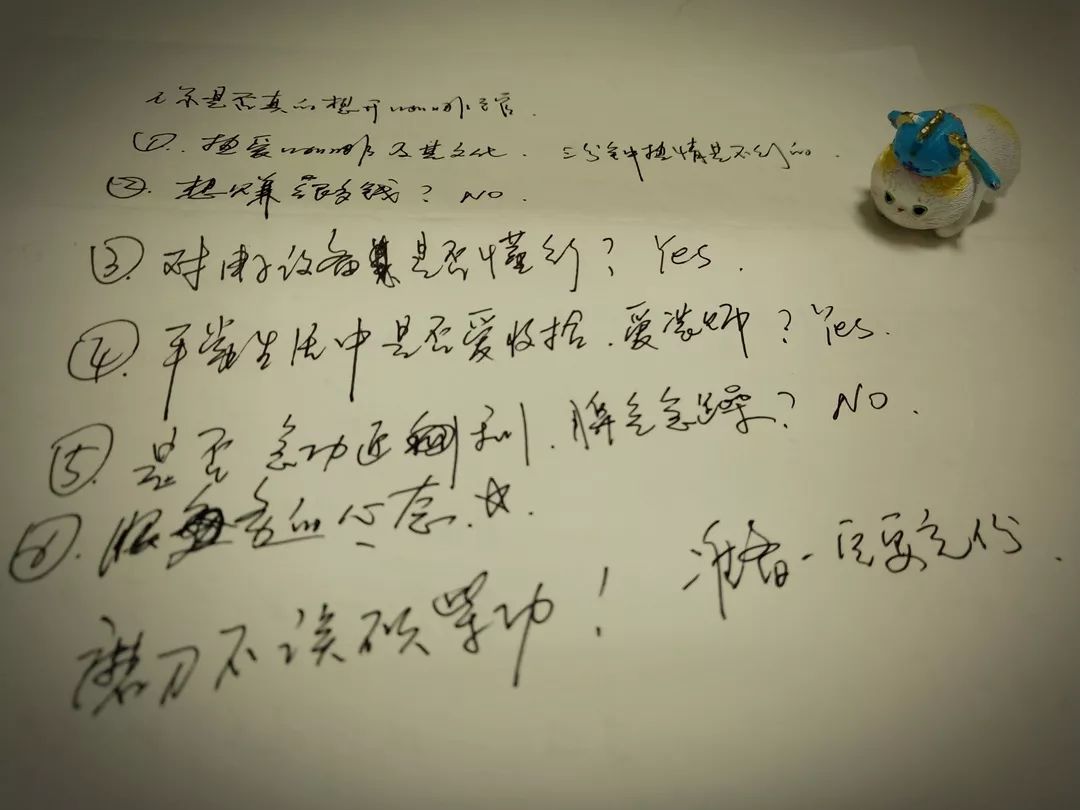 是否真的想开
①. 热爱 及其文化. 三分钟热情是不行的.
②. 想赚很多钱? NO.
③ 对 设备 是否懂行? Yes.
④. 平常生活中是否爱收拾、爱装饰? Yes.
⑤. 是否 急功近利、脾气急躁? NO.
⑥. 服务 的心态. ☆.
准备一定要充份.
磨刀不误砍柴功!